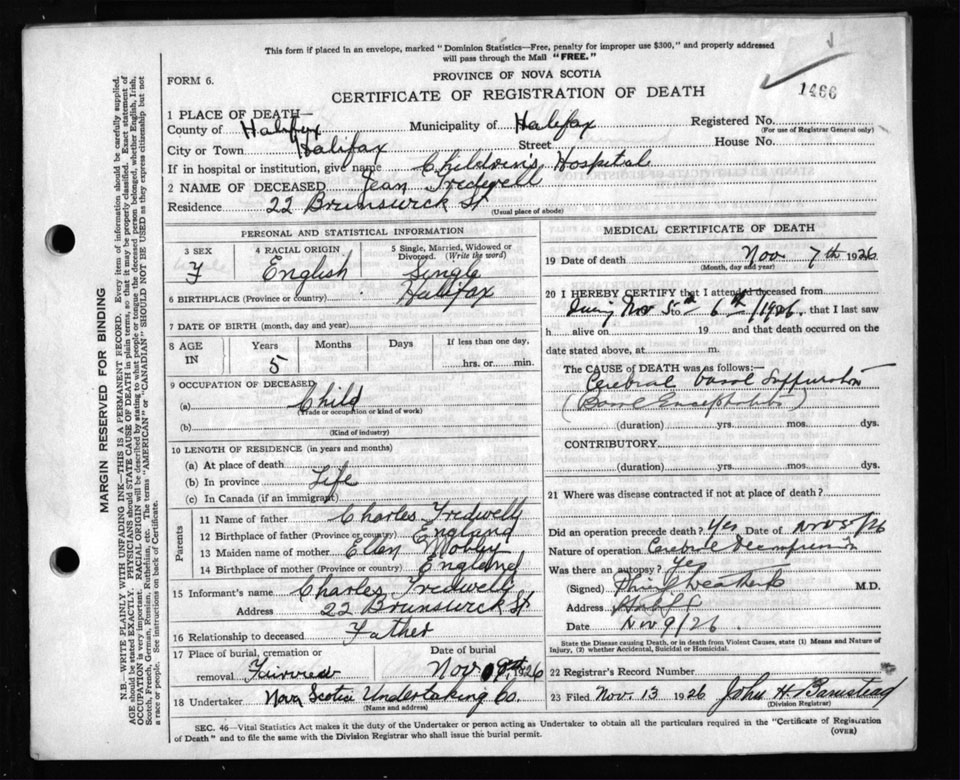 This form if placed in an envelope, marked "Dominion Statistics—Free, penalty for improper use $300," and properly addressed
will pass through the Mail "FREE."
1466
FORM 6.
PROVINCE OF NOVA SCOTIA
CERTIFICATE OF REGISTRATION OF DEATH
MARGIN RESERVED FOR BINDING
N.B.—WRITE PLAINLY WITH UNFADING INK—THIS IS A PERMANENT RECORD. Every item of information should be carefully supplied.
AGE should be stated EXACTLY. PHYSICIANS should STATE CAUSE OF DEATH in plain terms, so that it may be properly classified. Exact statement of
OCCUPATION is very important. RACIAL ORIGIN will be described by stating to what people or tongue the deceased person belonged, whether English, Irish,
Scotch, French, German, Russian, Ruthenian, etc. The terms "AMERICAN" or "CANADIAN" SHOULD NOT BE USED as they express citizenship but not
a race or people. See instructions on back of Certificate.
1 PLACE OF DEATH—
County of Halifax Municipality of Halifax Registered No.
(For use of Registrar General only)
City or Town Halifax Street House No.
If in hospital or institution, give name Children's Hospital
2 NAME OF DECEASED Jean Tredwell
Residence 22 Brunswick St
(Usual place of abode)
PERSONAL AND STATISTICAL INFORMATION
3 SEX F
4 RACIAL ORIGIN English
5 Single, Married, Widowed or Divorced. (Write the word) Single
6 BIRTHPLACE (Province or country) Halifax
7 DATE OF BIRTH (month, day and year)
8 AGE IN Years 5 Months Days If less than one day, hrs. or min.
9 OCCUPATION OF DECEASED
(a) Child
(Trade or occupation or kind of work)
(b)
(Kind of industry)
10 LENGTH OF RESIDENCE (in years and months)
(a) At place of death
(b) In province Life
(c) In Canada (if an immigrant)
Parents
11 Name of father Charles Tredwell
12 Birthplace of father (Province or country) England
13 Maiden name of mother Ellen
14 Birthplace of mother (Province or country) England
15 Informant's name Charles Tredwell
Address 22 Brunswick St
16 Relationship to deceased Father
17 Place of burial, cremation or removal Fairview
Date of burial Nov 9th 1926
18 Undertaker Nova Scotia Undertaking Co.
(Name and address)
MEDICAL CERTIFICATE OF DEATH
19 Date of death Nov 7th 1926
(Month, day and year)
20 I HEREBY CERTIFY that I attended deceased from
Nov 5th 6th/1926. that I last saw
h alive on 19 and that death occurred on the
date stated above, at m.
The CAUSE OF DEATH was as follows:—
Cerebral
(Basal Encephalitis)
(duration) yrs. mos. dys.
CONTRIBUTORY
(duration) yrs. mos. dys.
21 Where was disease contracted if not at place of death?
Did an operation precede death? Yes Date of Nov 5/26
Nature of operation Cerebral Decompression
Was there an autopsy? Yes
(Signed) M.D.
Address
Date Nov 9/26
State the Disease causing Death, or in death from Violent Causes, state (1) Means and Nature of
Injury, (2) whether Accidental, Suicidal or Homicidal.
22 Registrar's Record Number
23 Filed Nov. 13 1926 John H Barnstead
(Division Registrar)
SEC. 46—Vital Statistics Act makes it the duty of the Undertaker or person acting as Undertaker to obtain all the particulars required in the "Certificate of Registration
of Death" and to file the same with the Division Registrar who shall issue the burial permit.
(OVER)